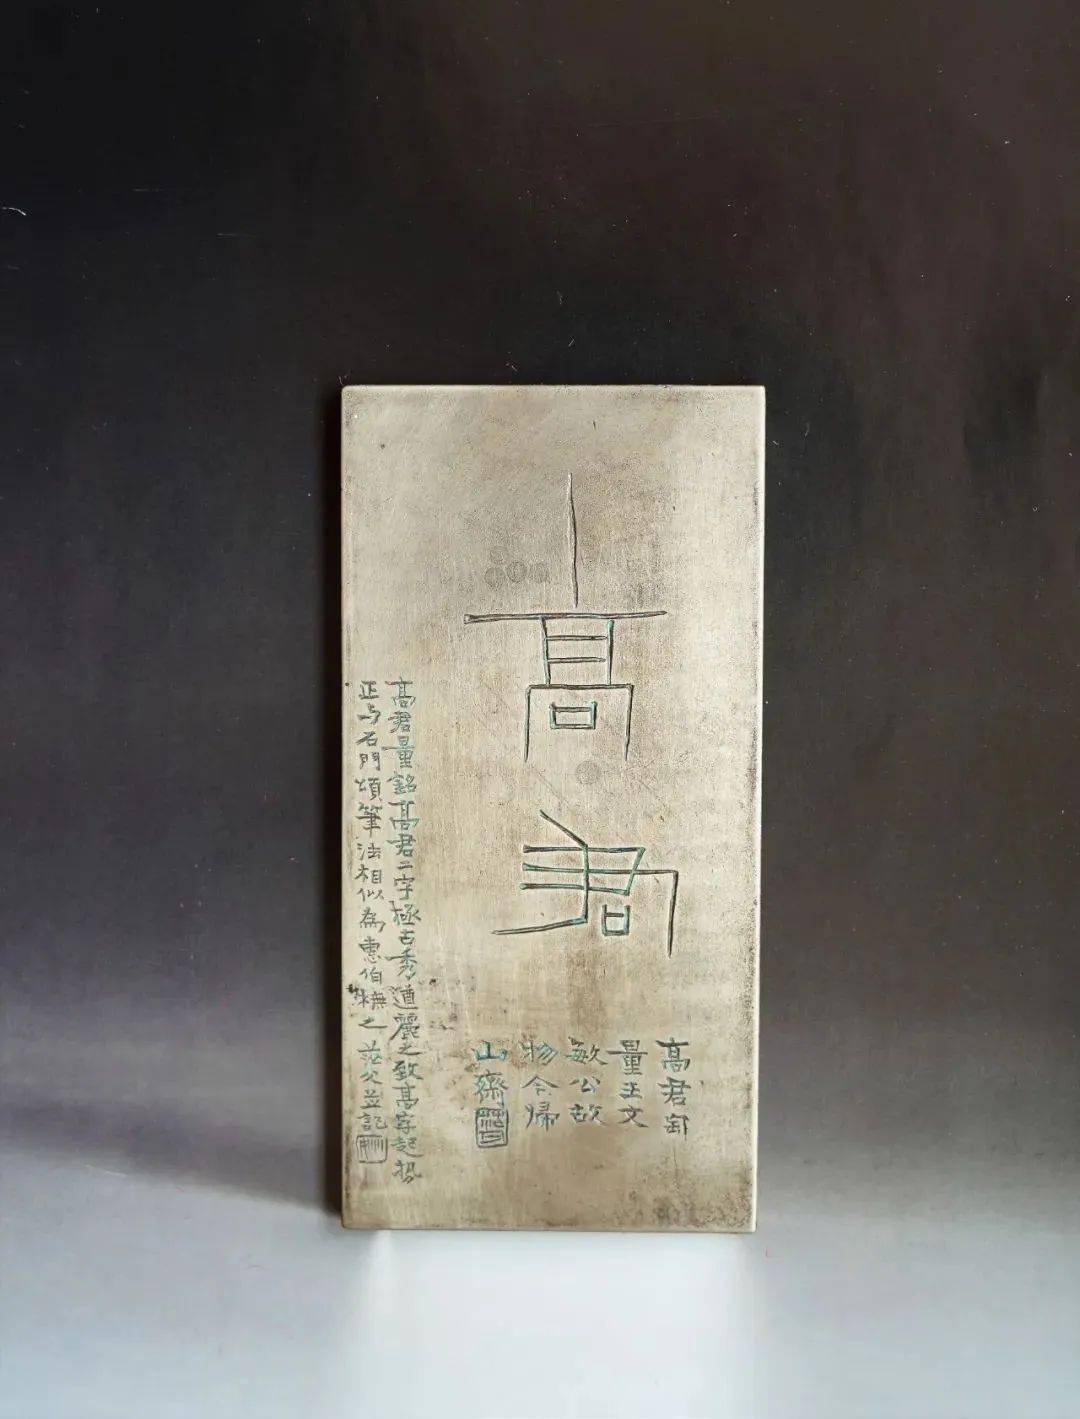 高君
高君
量王文
敏公故
物今歸
山齋
高君量銘高君二字極古秀遒麗之致高字起勢
正与石門頌筆法相似為惠伯橅之茫父並記